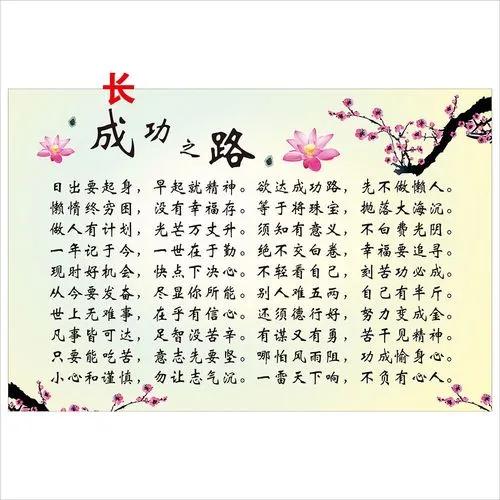 长
成功之路
日出要起身，早起就精神。欲达成功路，先不做懒人。
懒惰终穷困，没有幸福存。等于将珠宝，抛落大海沉。
做人有计划，光芒万丈升。须知有意义，不白费光阴。
一年记于今，一世在于勤。绝不交白卷，幸福要追寻。
现时好机会，快点下决心。不轻看自己，刻苦功必成。
从今要发奋，尽显你所能。别人难五两，自己有半斤。
世上无难事，在乎有信心。还须德行好，努力变成金。
凡事皆可达，足智没苦辛。有谋又有勇，苦干见精神。
只要能吃苦，意志先要坚。哪怕风雨阻，功成愉身心。
小心和谨慎，勿让志气沉。一雷天下响，不负有心人。